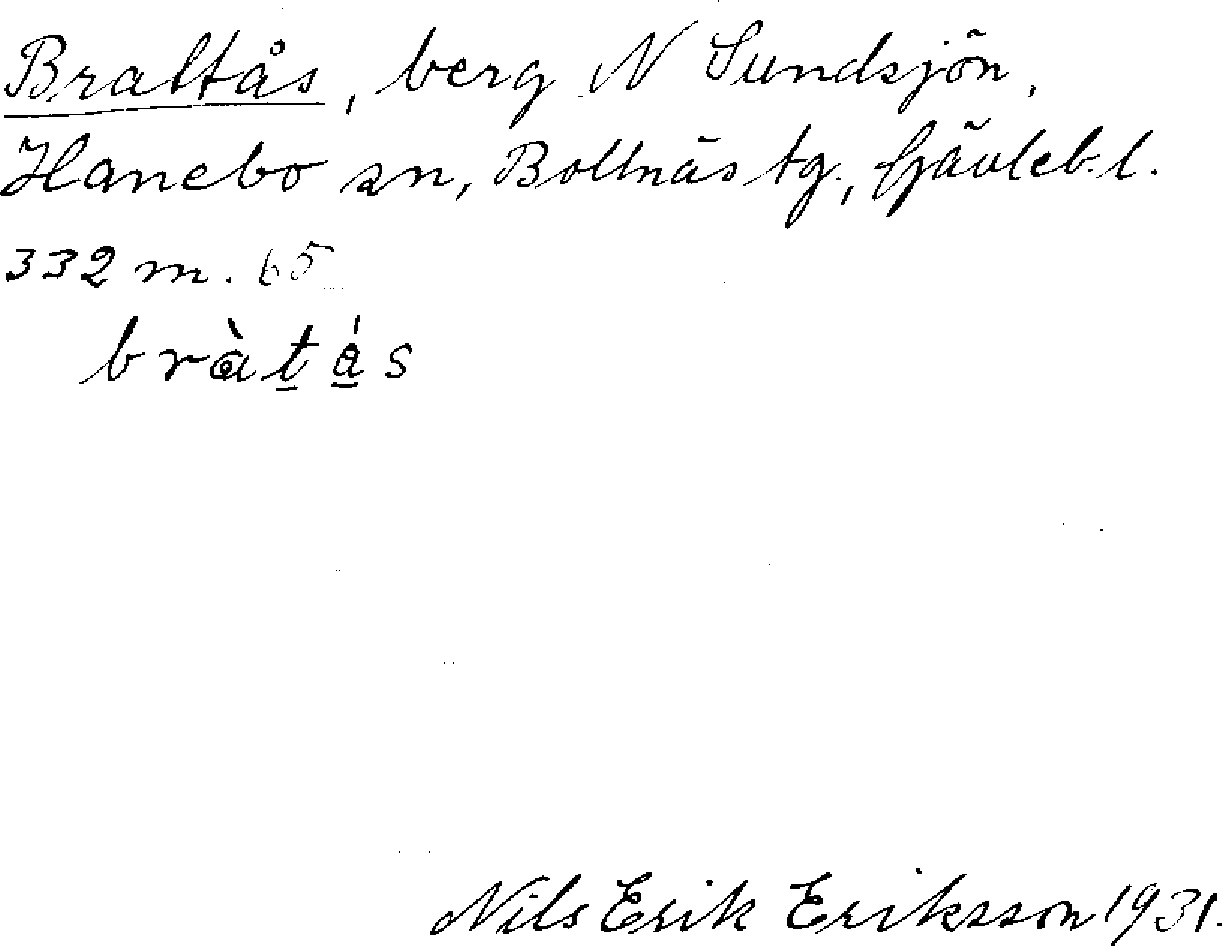 Brattås, berg N Sundsjön,
Hanebo sn, Bollnäs tg., Gävleb.l.
332 m. 65
bràt̲ǻ̲s
Nils Erik Eriksson 1931.